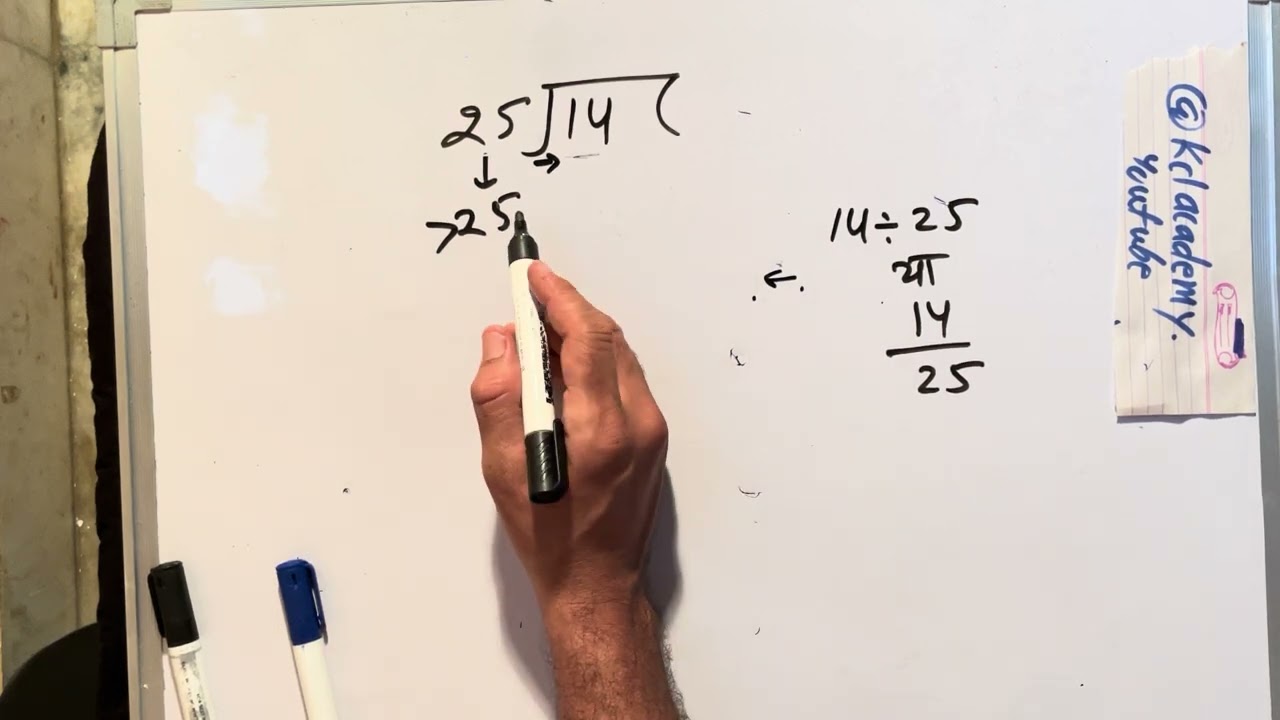 25)14(
25
14÷25
या
14
25
@kclacademy.
Youtube